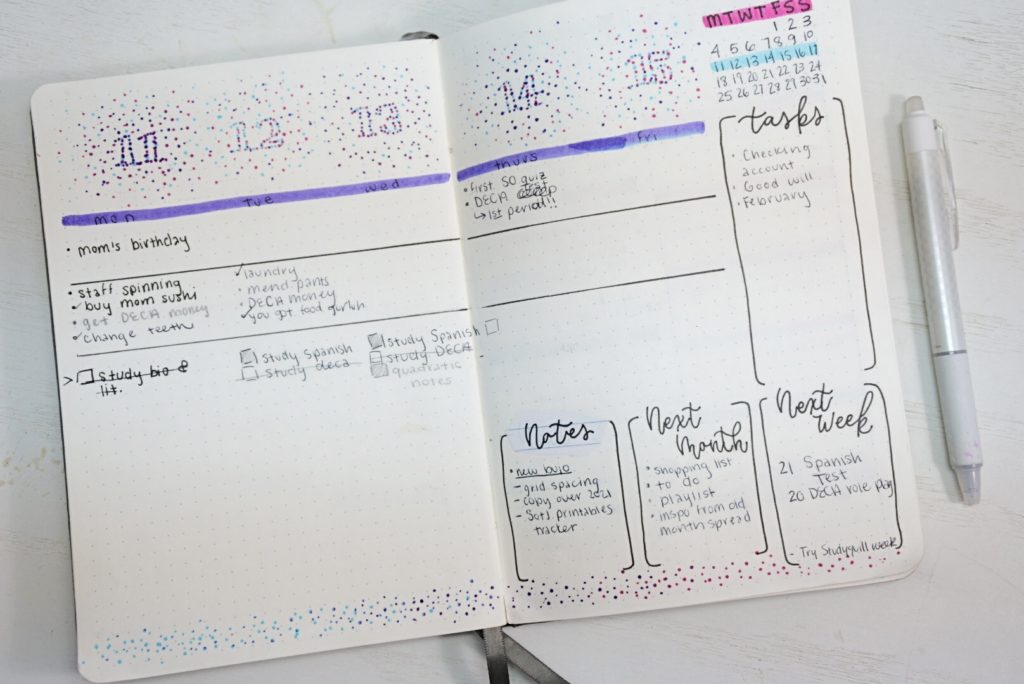 11
12
13
mon
Tue
wed
• mom's birthday
• staff spinning
buy mom sushi
• get DECA money
change teeth
laundry
• mend pants
• DECA money
you got food gurlsh
> study bio &
lit.
study Spanish
study deca
study Spanish
study DECA
quadratic
notes
14
15
thurs
fri
• first SO quiz
• DECA
↳ 1st period!!
M T W T F S S
1 2 3
4 5 6 7 8 9 10
11 12 13 14 15 16 17
18 19 20 21 22 23 24
25 26 27 28 29 30 31
tasks
• Checking
account
• Good will
• February
Notes
• new bujo
- grid spacing
- copy over 2021
- Sort printables
tracker
Next
Month
• shopping list
• to do
• playlist
• inspo from old
month spread
Next
Week
21 Spanish
Test
20 DECA role play
- Try Studyquill week